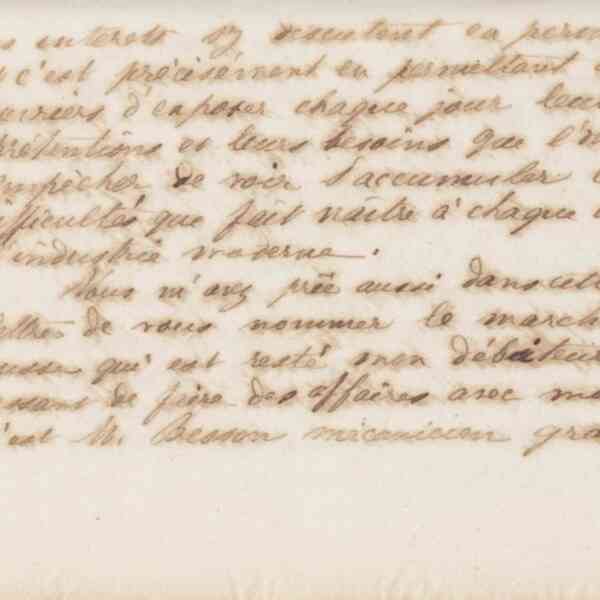 interets s'y rencontrent en perm
c'est précisément en permettant
ouvriers d'exposer chaque jour leur
prétentions et leurs besoins que l'on
empêcher de voir s'accumuler
difficultés que fait naître à chaque
industrie moderne.
Vous m'avez prié aussi dans cette
lettre de vous nommer le march
russe qui est resté mon débiteur
de faire des affaires avec mo
c'est M. Besson mécanicien gra